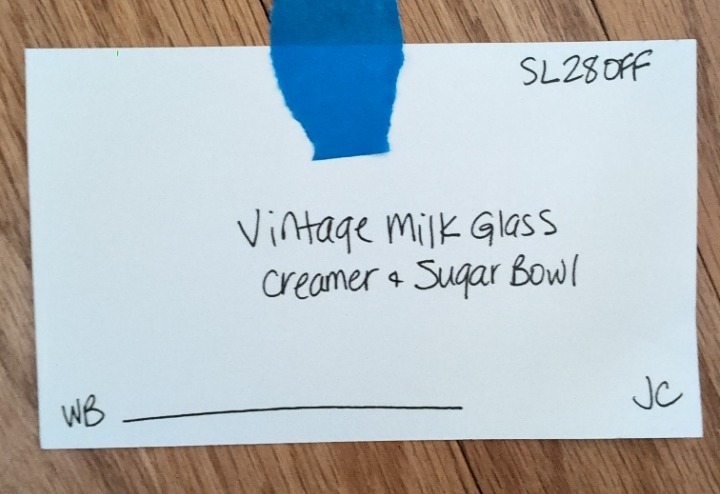 SL28OFF
Vintage Milk Glass
Creamer & Sugar Bowl
WB
JC